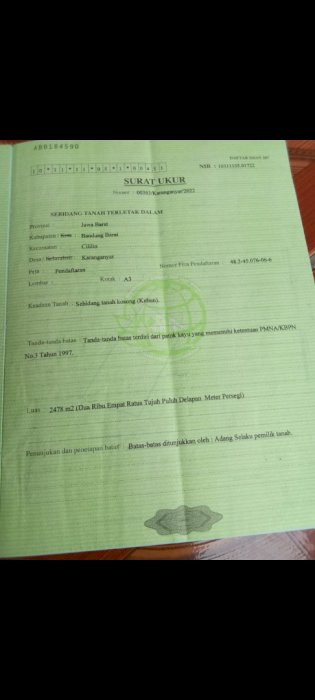 SURAT UKUR
Nomor : 00393/Karanganyar/2022
SEBIDANG TANAH TERLETAK DALAM
Propinsi : Jawa Barat
Kabupaten / Kota : Bandung Barat
Kecamatan : Cililin
Desa / Kelurahan : Karanganyar
Peta : Pendaftaran
Nomor Peta Pendaftaran : 48.2-45.076-06-6
Lembar : Kotak : A3
Keadaan Tanah : Sebidang tanah kosong (Kebun).
Tanda-tanda batas : Tanda-tanda batas terdiri dari patok kayu yang memenuhi ketentuan PMNA/KBPN
No.3 Tahun 1997.
Luas : 2478 m2 (Dua Ribu Empat Ratus Tujuh Puluh Delapan Meter Persegi)
Penunjukan dan penetapan batas : Batas-batas ditunjukkan oleh : Adang Selaku pemilik tanah.